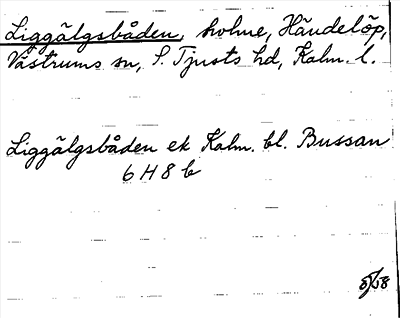 Liggälgsbåden, holme, Händelöp,
Västrums sn, S. Tjusts hd, Kalm. l.
Liggälgsbåden ek Kalm. bl. Bussan
6 H 8 b